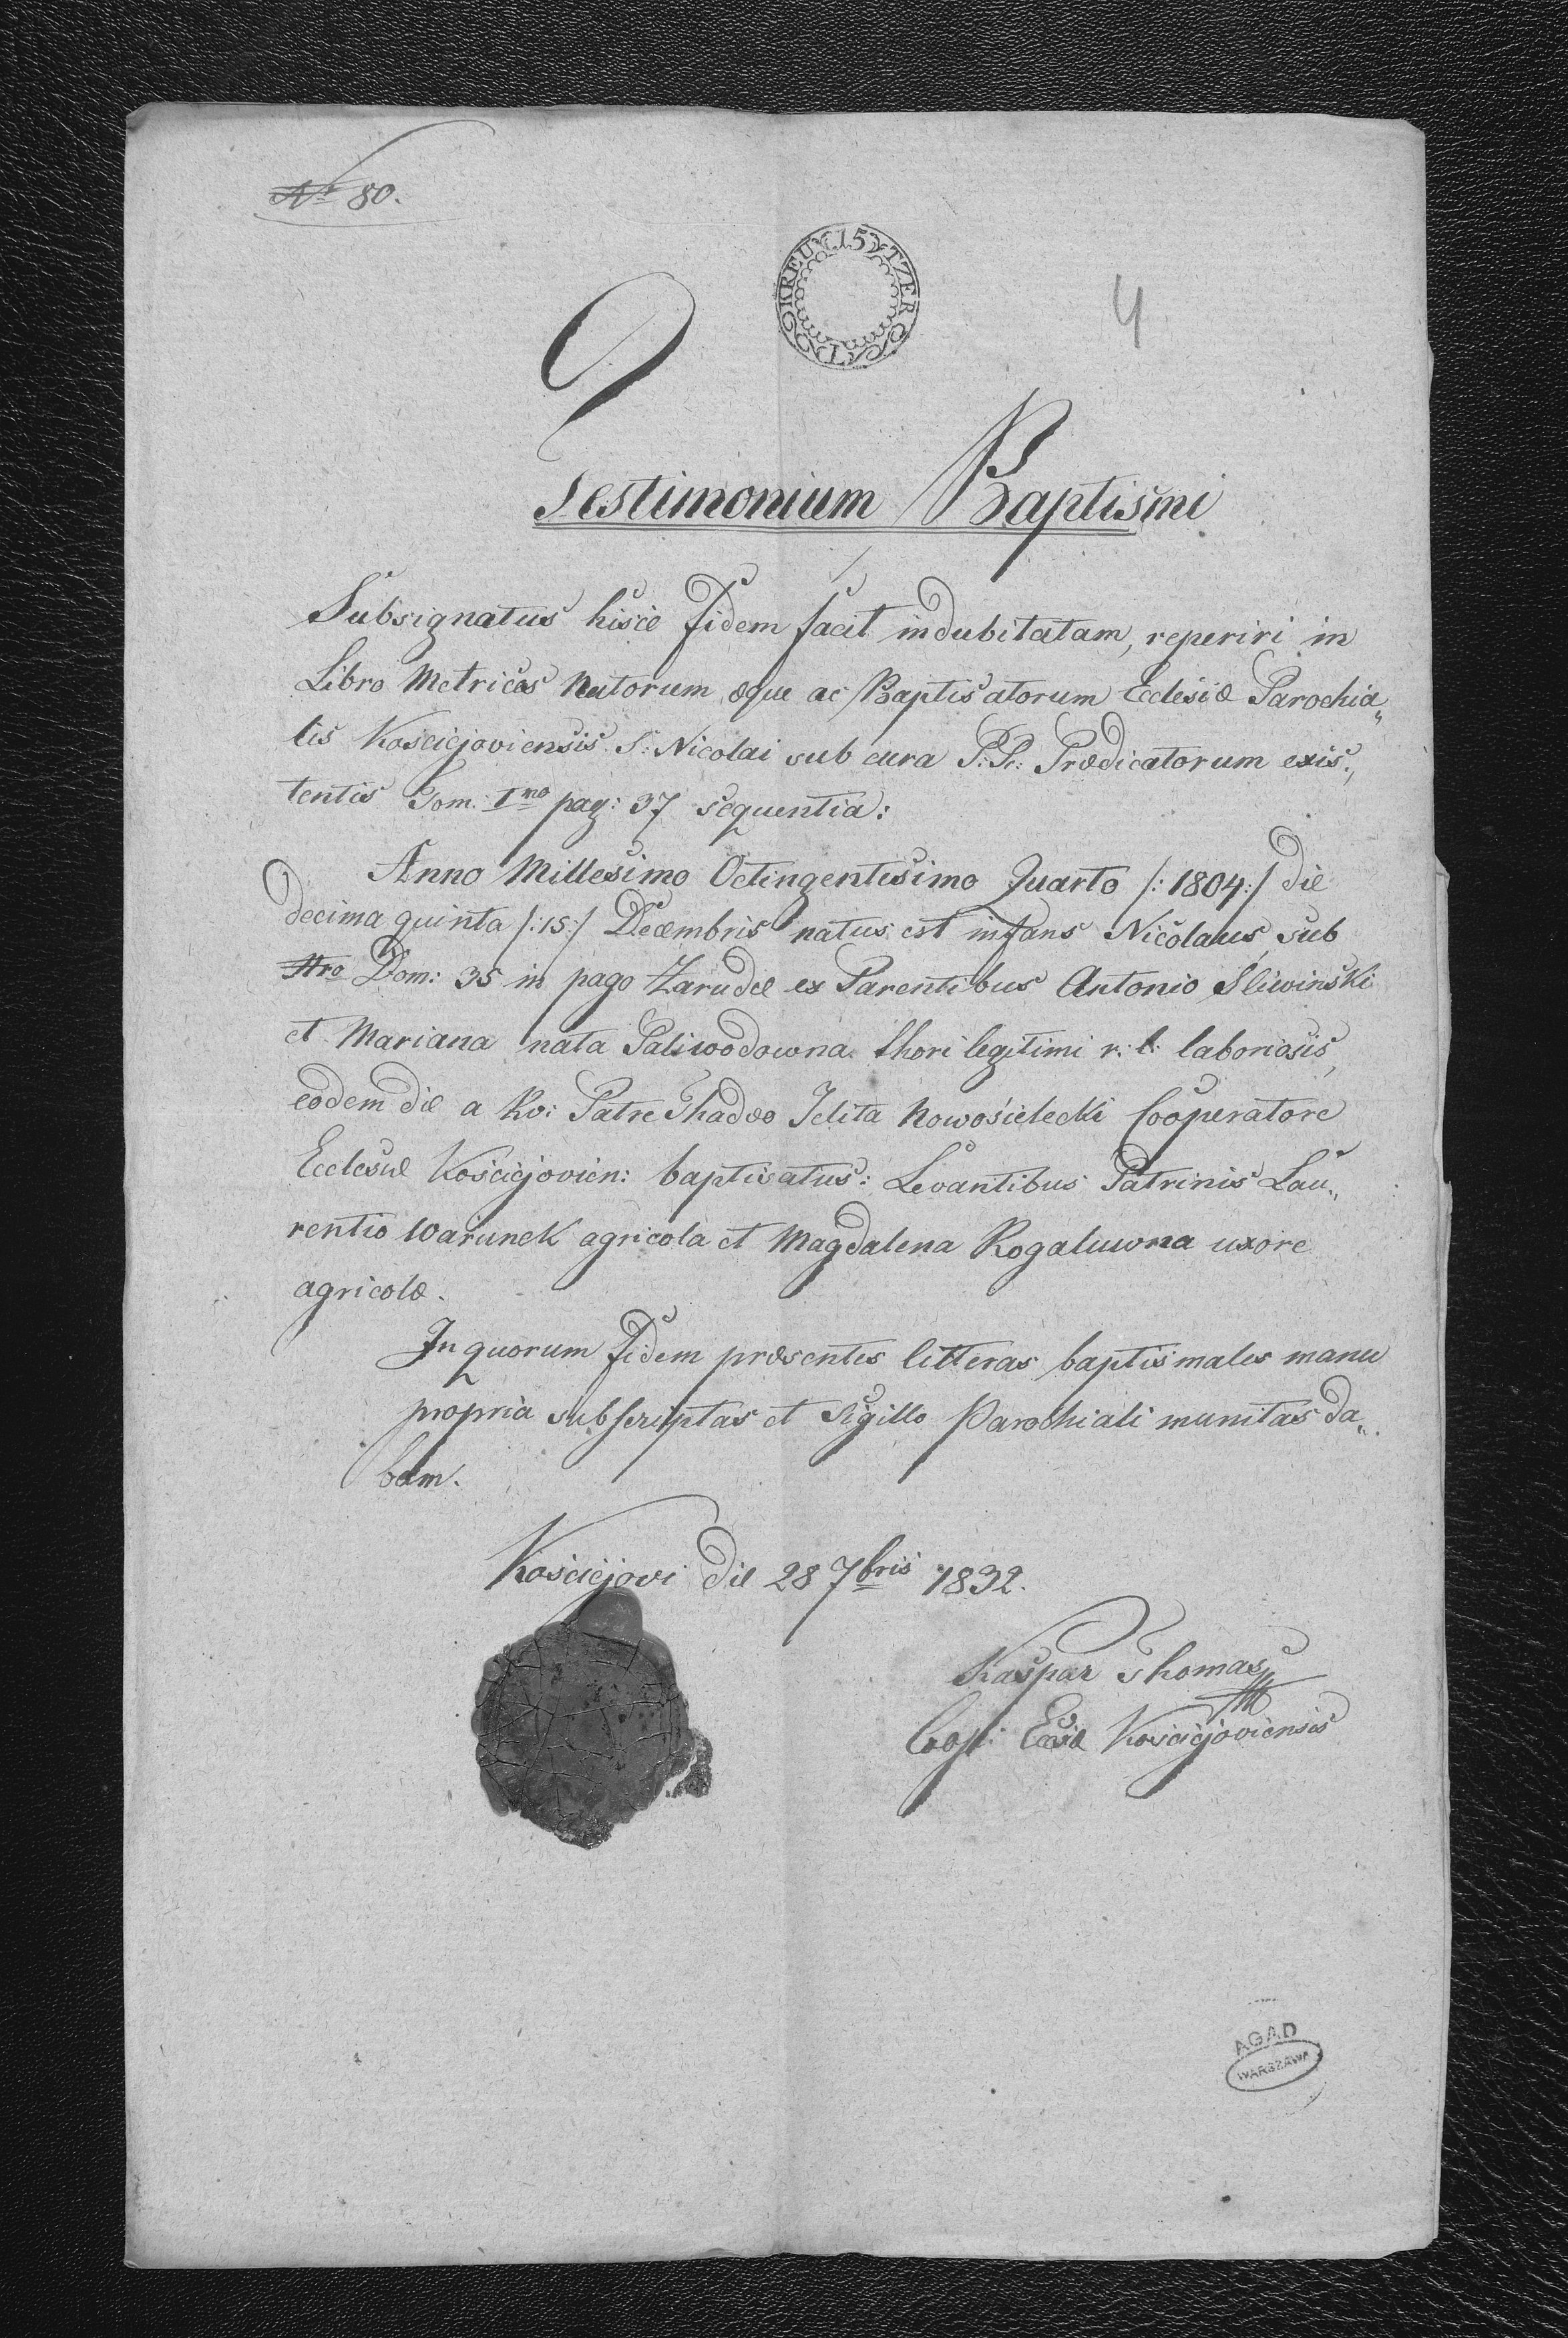 No 80.
15 KREUTZER
4
Testimonium Baptismi
Subsignatus hisce fidem facit indubitatam, reperiri in
Libro Metrices Natorum æque ac Baptisatorum Ecclesiæ Parochia„
lis Kosciejoviensis S: Nicolai sub cura P:P: Prædicatorum exis„
tentis Tom: Imo pag: 37 sequentia:
Anno Millesimo Octingentesimo Quarto /:1804:/ die
decima quinta /:15:/ Decembris natus est infans Nicolaus, sub
Nro Dom: 35 in pago Zarudce ex Parentibus Antonio Sliwinski
et Mariana nata Paliwodowna thori legitimi r: l: laboriosis,
eodem die a Rv: Patre Thadæo Jelita Nowosielecki Cooperatore
Ecclesiæ Kościejovien: baptisatus: Levantibus Patrinis Lau„
rentio Warunek agricola et Magdalena Rogaluwna uxore
agricolæ.
In quorum fidem præsentes litteras baptismales manu
propria subscriptas et Sigillo Parochiali munitas da„
bam.
Kościejovi die 28 7bris 1832.
Kaspar Thomas
Coop: Ecclæ Kościejoviensis
AGAD
WARSZAWA